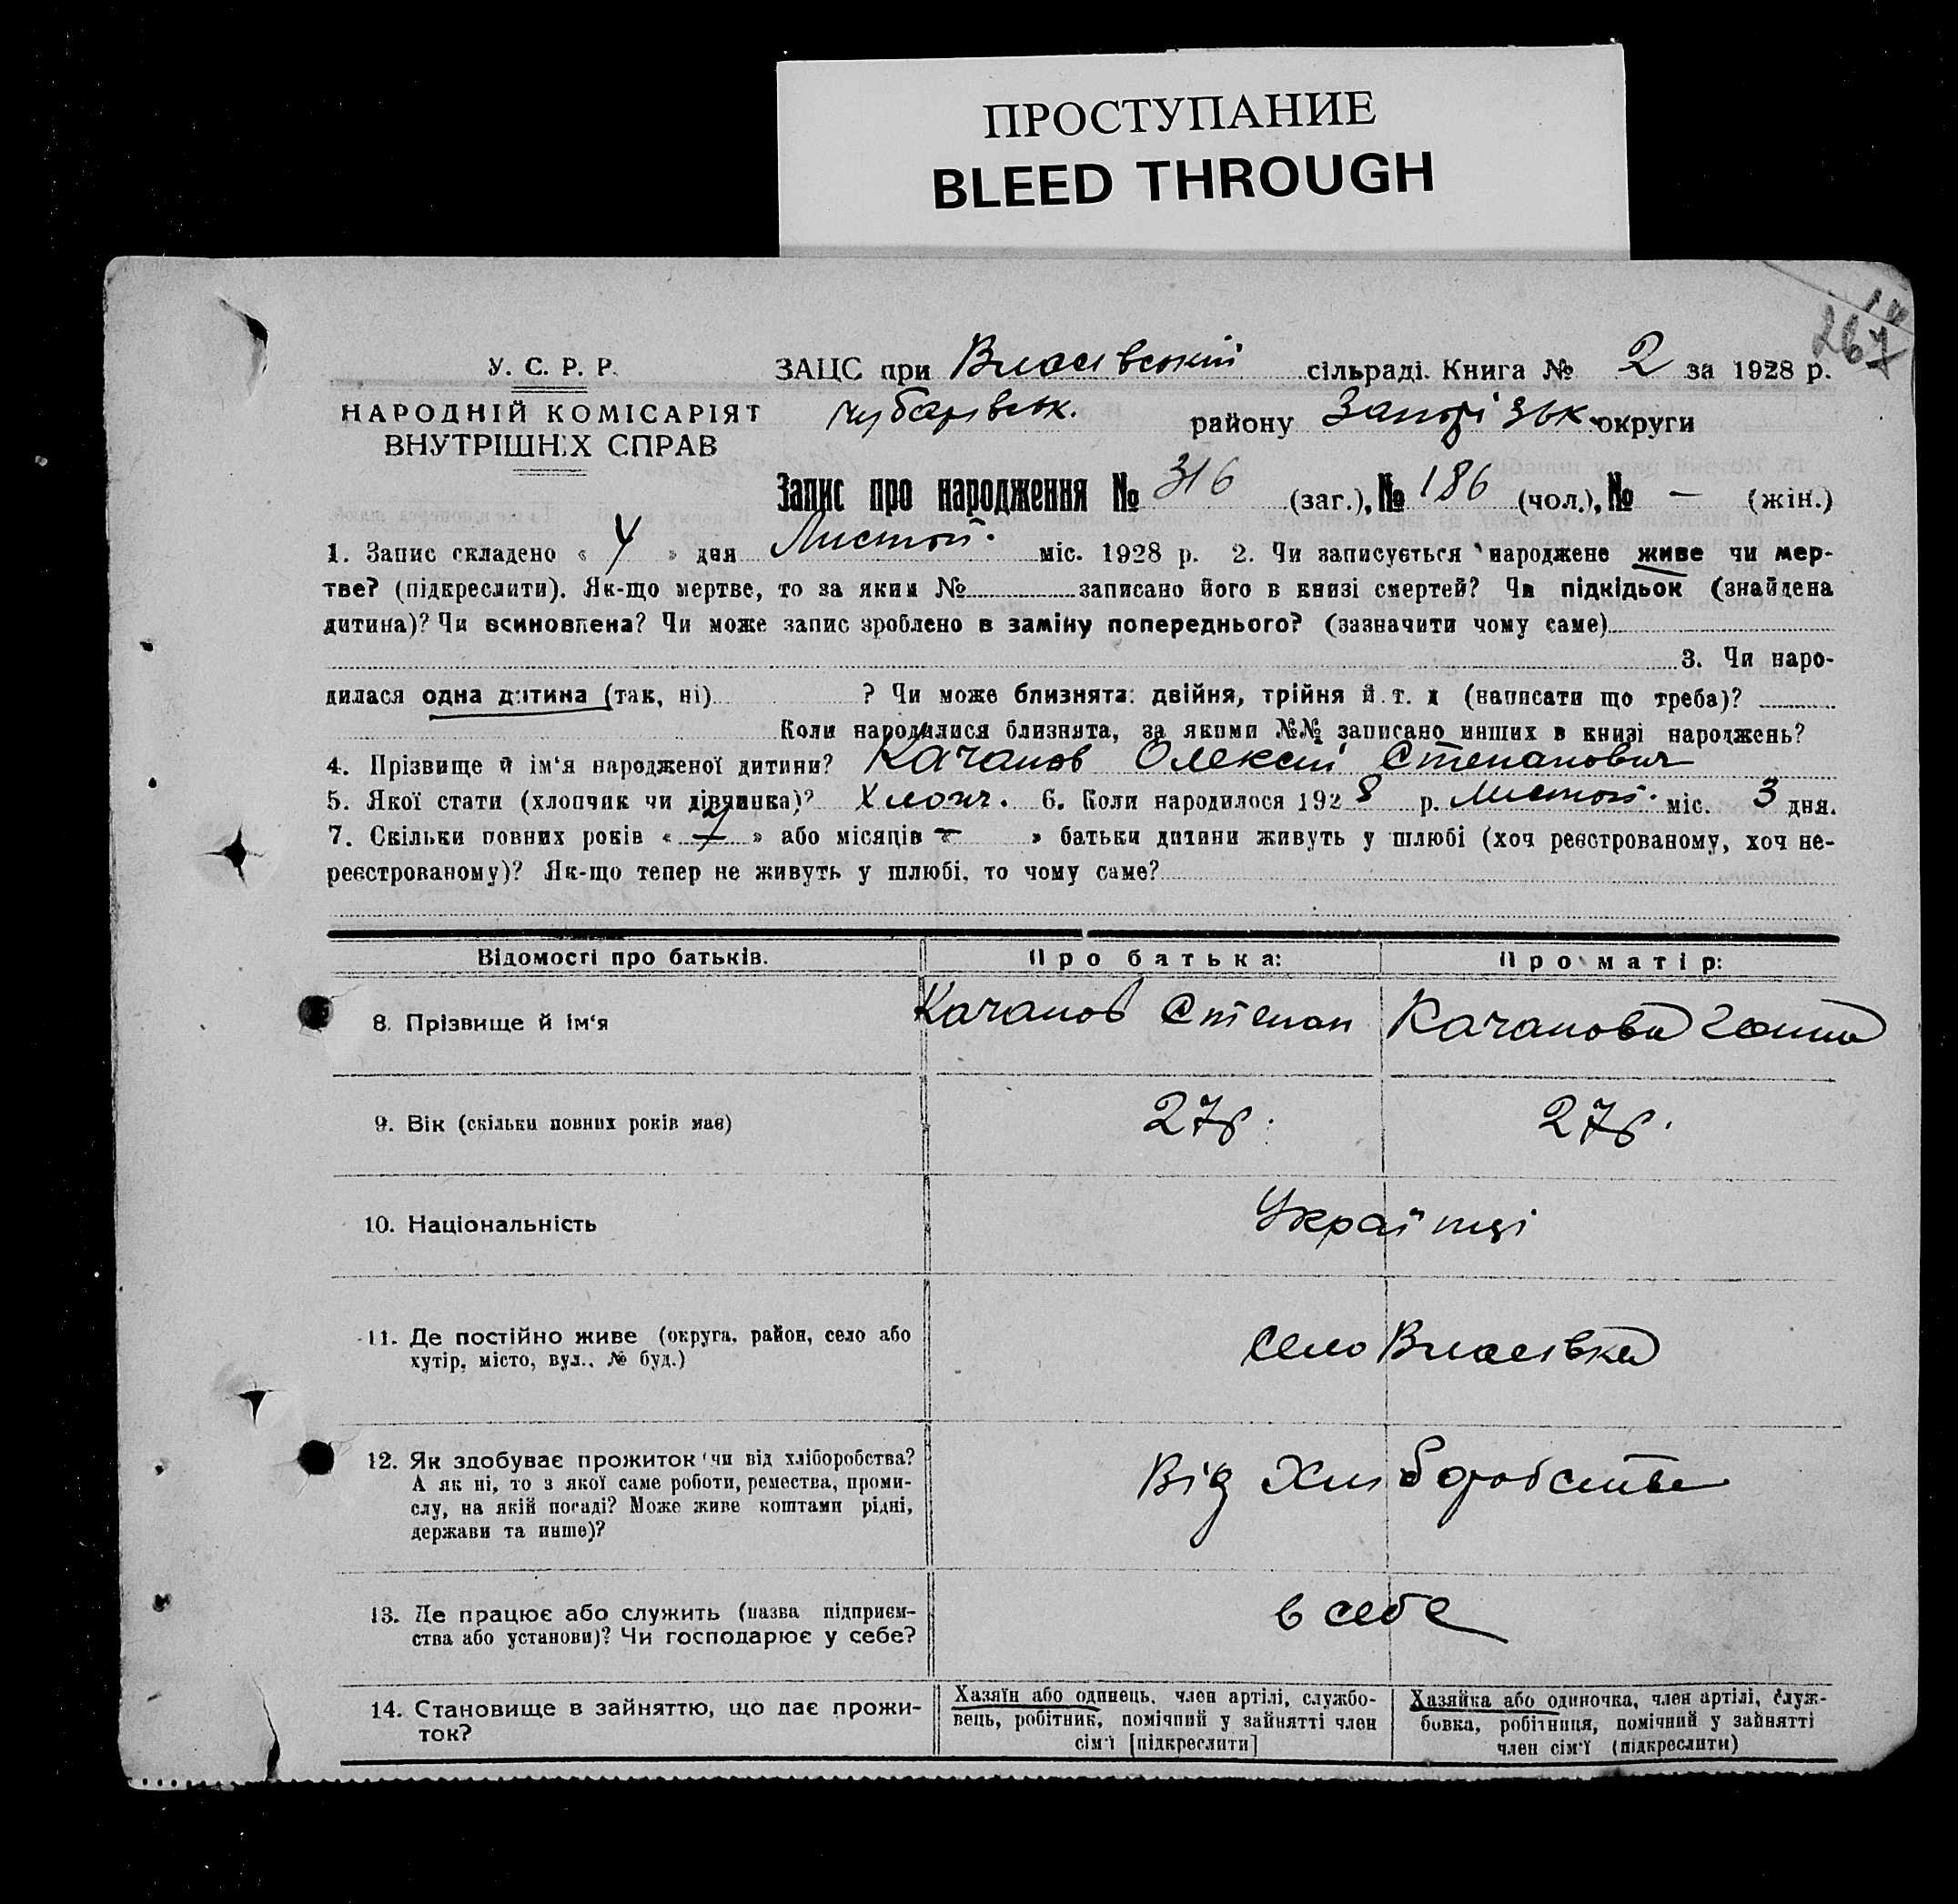 ПРОСТУПАНИЕ
BLEED THROUGH
267
У. С. Р. Р.
НАРОДНІЙ КОМІСАРІЯТ
ВНУТРІШНІХ СПРАВ
ЗАЦС при Власівській сільраді. Книга № 2 за 1928 р.
Чубарівськ. району Запорізьк. округи
Запис про народження № 316 (заг.), № 186 (чол.), № — (жін.)
1. Запис складено « 4 » дня Листоп. міс. 1928 р. 2. Чи записується народжене живе чи мер-
тве? (підкреслити). Як-що мертве, то за яким № записано його в книзі смертей? Чи підкідьок (знайдена
дитина)? Чи всиновлена? Чи може запис зроблено в заміну попереднього? (зазначити чому саме)
3. Чи наро-
дилася одна дитина (так, ні) ? Чи може близнята: двійня, трійня й. т. д (написати що треба)?
Коли народилися близнята, за якими №№ записано инших в книзі народжень?
4. Прізвище й ім‘я народженої дитини? Качанов Олексій Степанович
5. Якої стати (хлопчик чи дівчинка)? Хлопч. 6. Коли народилося 1928 р. Листоп. міс. 3 дня.
7. Скільки повних років « 7 » або місяців — » батьки дитини живуть у шлюбі (хоч реєстрованому, хоч не-
реєстрованому)? Як-що тепер не живуть у шлюбі, то чому саме?
Відомості про батьків. Про батька: Про матір:
8. Прізвище й ім‘я Качанов Степан Качанова Ганна
9. Вік (скільки повних років має) 27 р. 27 р.
10. Національність Українці
11. Де постійно живе (округа, район, село або
хутір, місто, вул., № буд.) село Власівка
12. Як здобуває прожиток чи від хліборобства?
А як ні, то з якої саме роботи, ремества, проми-
слу, на якій посаді? Може живе коштами рідні,
держави та инше)? Від Хліборобства
13. Де працює або служить (назва підприєм-
ства або установи)? Чи господарює у себе? в себе
14. Становище в зайняттю, що дає прожи-
ток?
Хазяїн або одинець, член артілі, службо-
вець, робітник, помічний у зайнятті член
сім‘ї [підкреслити]
Хазяйка або одиночка, член артілі, служ-
бовка, робітниця, помічний у зайнятті
член сім‘ї (підкреслити)